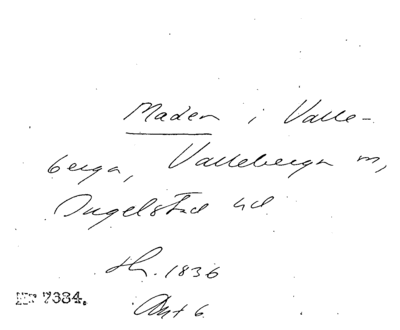 Maden i Valle-
berga, Valleberga sn,
Ingelstad hd
Sk. 1836
Akt 6
Nr 7384.